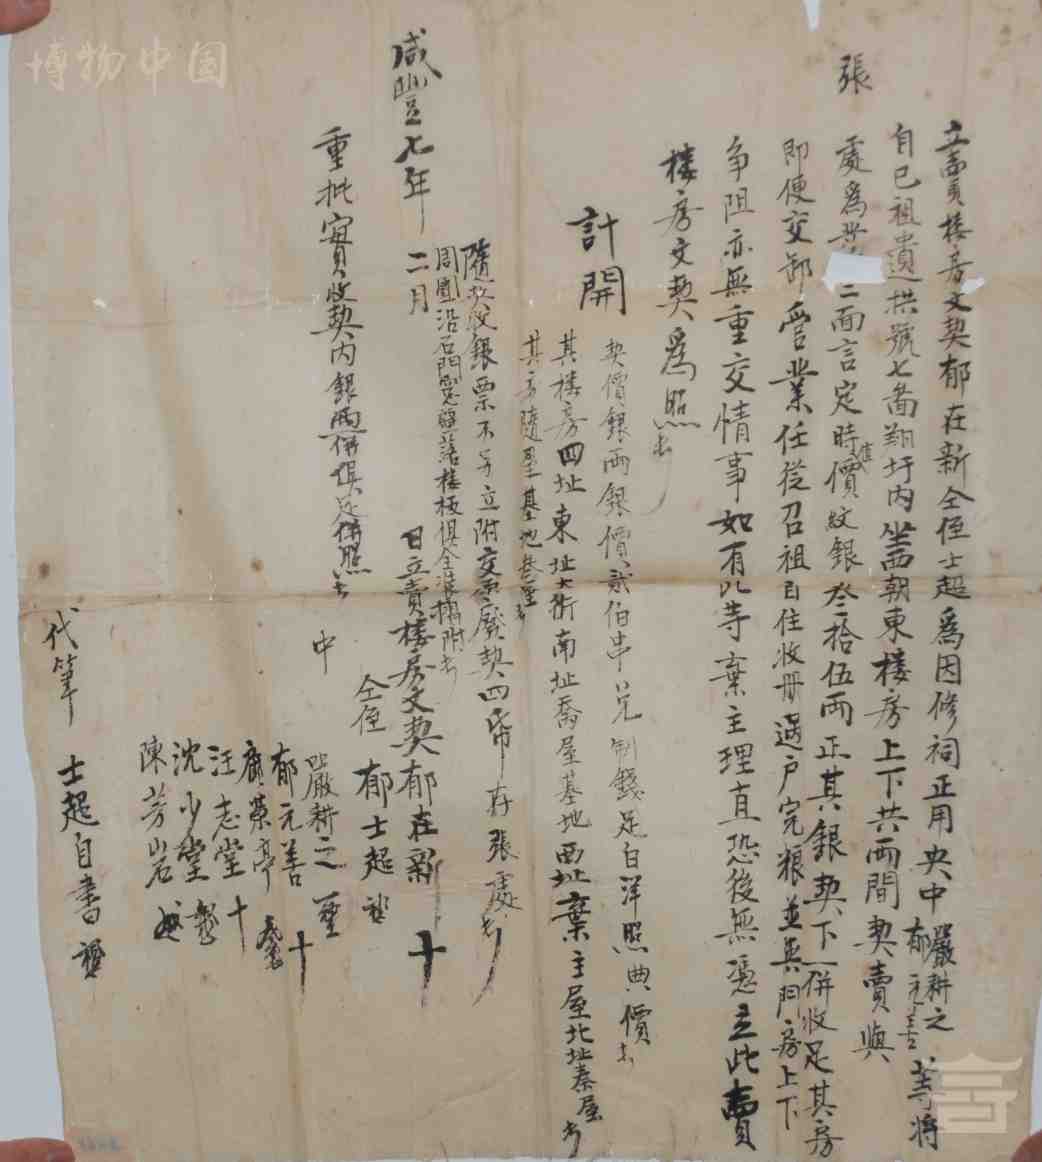 立賣樓房文契郁在新仝侄士超爲因修祠正用央中嚴耕之郁元善等將
自己祖遺拱號七啚翔圩内坐西朝東樓房上下共兩間契賣與
張
處爲業 二面言定時值價紋銀叁拾伍兩正其銀契下一併收足其房
即便交卸管業任從召祖自住收冊過户完粮並無門房上下
争阻亦無重交情事如有此等棄主理直恐後無憑立此賣
樓房文契爲照
計開
契價銀兩銀價貳伯串兑制錢足白洋照典價
其樓房四址東址大街南址喬屋基地西址棄主屋北址秦屋
其房隨屋基地叁
隨契收銀票不另立附交原廢契四帋存張處
周圍沿石門窓壁落樓板俱全裝摺附
咸豐七年二月 日立賣樓房文契郁在新 十
仝侄 郁士超
重批實收契内銀兩一併俱足併照
中
嚴耕之
郁元善 十
榮亭
汪志堂 十
沈少堂
陳芳岩
代筆 士超自書
博物中国